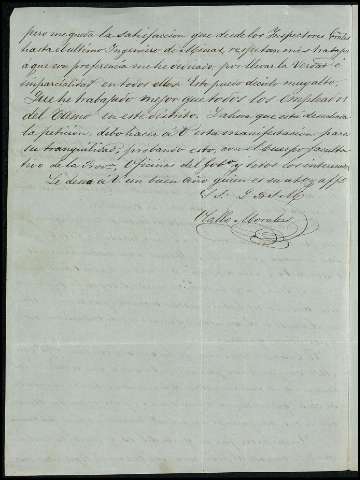 pero me queda la satisfaccion que desde los Inspectores
hasta el ultimo Ingeniero de Minas, respetan mis trabajos
a que con preferencia me he dedicado, por llevar la Verdad é
imparcialidad en todos ellos. Esto puedo decirlo muy alto.
Que he trabajado mejor que todos los Empleados
del Ramo en este distrito. I ahora que esta
la peticion, debo hacer á V. esta manifestacion para
su tranquilidad; probando esto, con el Cuerpo faculta-
tivo de la Prova Oficinas del Gobo y todos los interesados
Le desea á V. un buen año quien es su atto y affo
S. S. Q. B. S. M.
Vallo Morales